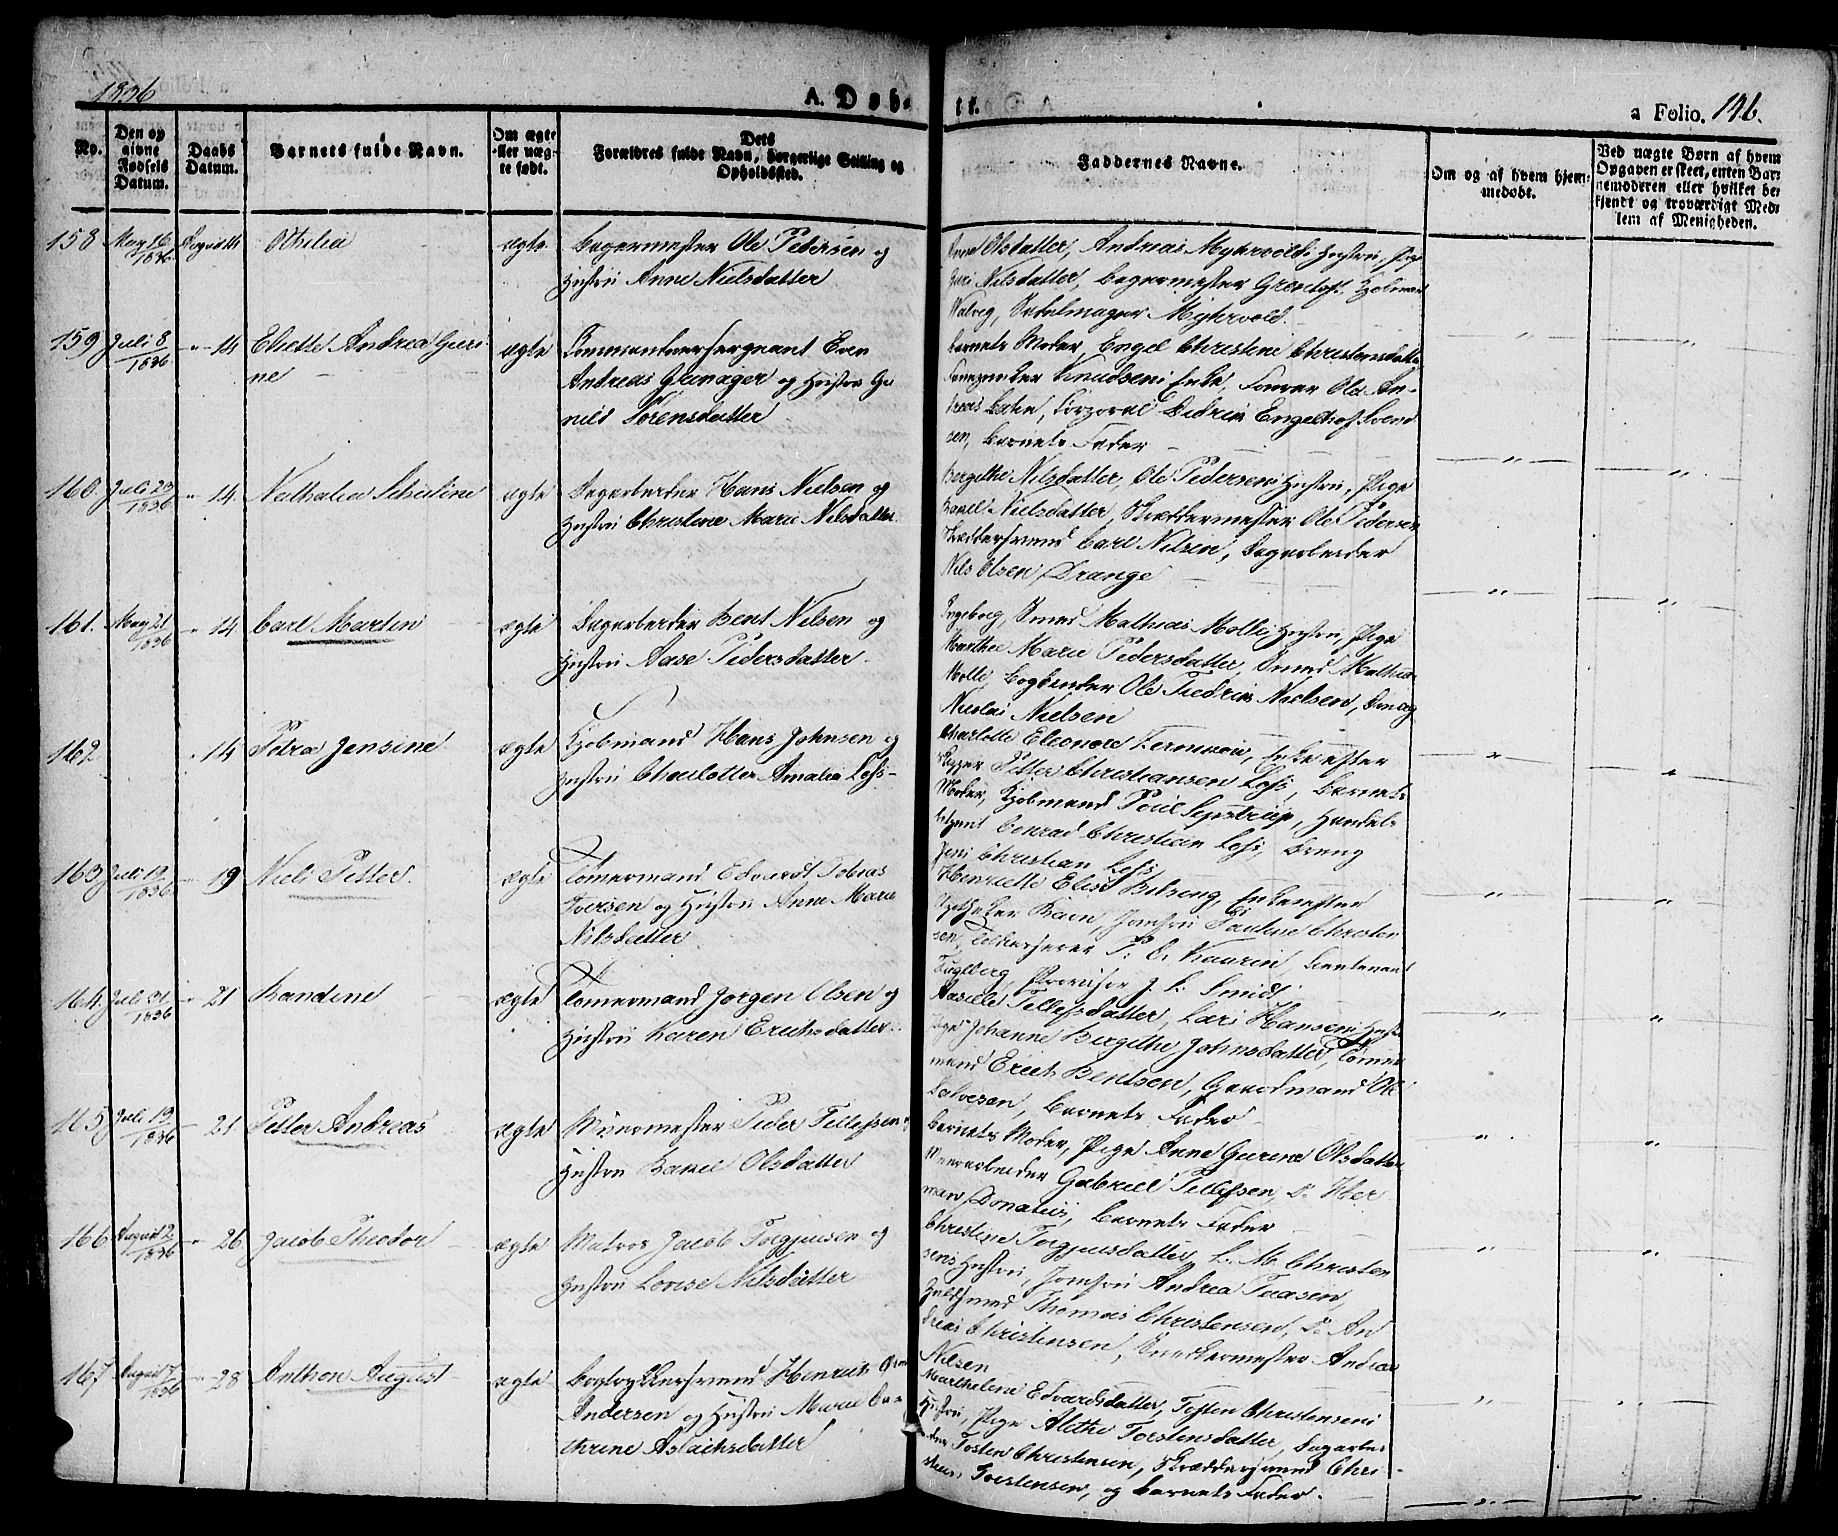 1836
A. Døbte.
a Folio. 146.
No.
Den opgivne Fødsels Datum.
Daabs Datum.
Barnets fulde Navn.
Om ægte eller uægte født.
Dets Forældres fulde Navn, borgerlige Stilling og Opholdssted.
Faddernes Navne.
Om og af hvem hjemmedøbt.
Ved uægte Børn af hvem Opgaven er skeet, enten Barnemoderen eller hvilket bekjendt og troværdigt Medlem af Menigheden.
158 May 16 1836 August 14 Othilia ægte Bagermester Ole Pedersen og
Hustru Anne Nielsdatter
Anne Olsdatter, Andreas Myhrvolds Hustru, Pige
Nilsdatter, Bagermester Grentoft, Kjøbmand
Walvig, Myhrvold.
159 Juli 8 1836 " 14 Elsette Andrea Guri
ne ægte Commandeersergeant Even
Andreas Grenager og Hustru Gu
nild Sørensdatter
Barnets Moder, Engel Christine Christensdatter
Knudsens Enke, Farver Ole An-
dreas Bohn, Corporal Didrik Engelhof Svend
sen, Barnets Fader
160. Juli 23 1836 " 14. Nathalia Schaline ægte Dagarbeider Hans Nielsen og
Hustru Christine Marie Nilsdatter
Bergithe Nilsdatter, Ole Pedersens Hustru, Pige
Karel Nielsdatter, Skræddermester Ole Pedersen
Skræddersvend Carl Nilsen, Dagarbeider
Nils Olsen Drange
161. May 21 1836 " 14 Carl Martin ægte Dagarbeider Bent Nilsen og
Hustru Aase Pedersdatter
Ingeborg, Smed Mathias Molles Hustru, Pige
Marthe Marie Pedersdatter, Smed Mathias
Molle, Bogbinder Ole Fredrik Nielsen, Dreng
Nicolai Nielsen
162 " 14 Petra Jensine ægte Kjøbmand Hans Johnsen og
Hustru Charlotte Amalia Løfs
Charlotte Eleonore Enke efter
Skipper Petter Christiansen Løfs, Barnets
Moder, Kjøbmand Poul Handels
betjent Conrad Christian Løfs, Dreng
Jens Christian Løfs
163 Juli 19 1836 19 Niels Petter ægte Tømermand Edvardt Tobias
Iversen og Hustru Anne Marie
Nilsdatter
Henriette Elise Enke efter
Apotheker Jomfru Pauline Christen
sen, P. C. Kaurin, Lieutenant
Fuglberg, Provisor J. C. Smidt
164. Juli 31 1836 " 21 Bandine ægte Tømermand Jørgen Olsen og
Hustru Karen Erichsdatter
Aasille Tellefsdatter, Lars Hansens Hustru
Pige Johanne Bergithe Johnsdatter, Tømmer
mand Erich Bentsen, Gaardmand Ole
Salvesen, Barnets Fader
165 Juli 19 1836 21 Petter Andreas ægte Muurmester Peder Tellefsen og
Hustru Karel Olsdatter
Barnets Moder, Pige Anne Gurine Olsdatter
Muurarbeider Gabriel Tellefsen, D. Her
man Donatius, Barnets Fader
166 August 2 1836 " 26 Jacob Theodor ægte Matros Jacob Torgjusen og
Hustru Lovise Nilsdatter
Christine Torgjusdatter, L. M. Christen
sens Hustru, Jomfru Andrea Paasen,
Guldsmed Thomas Christensen, D. An
dreas Christensen, Snedkermester Andreas
Nilsen
167 August 7 1836 " 28 Anthon August ægte Bogtrykkersvend Henrich
Andersen og Hustru Marie Ca
thrine Aslachsdatter
Marthelene Edvardsdatter, Tosten Christensens
Hustru, Pige Alethe Torstensdatter, Dagarbei
der Tosten Christensen, Skræddersvend Chri
sten Torstensen, og Barnets Fader.